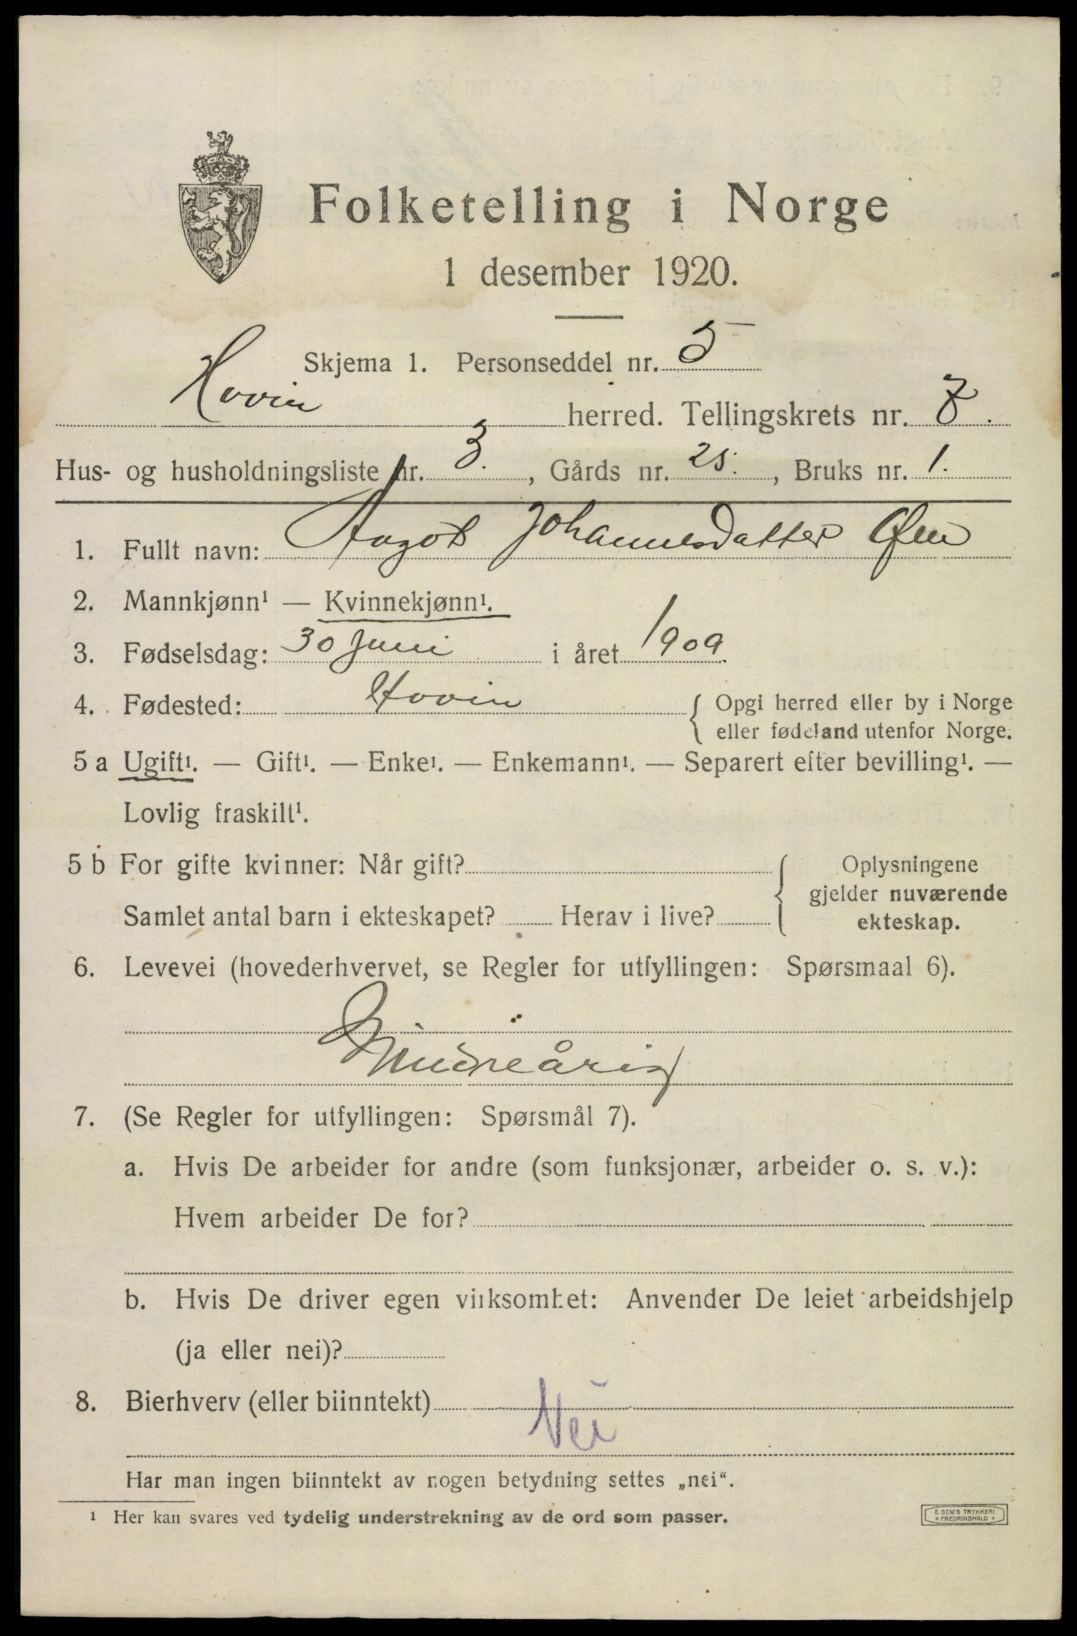 Folketelling i Norge
1 desember 1920.
Skjema 1. Personseddel nr. 5
Hovin herred. Tellingskrets nr. 7.
Hus- og husholdningsliste nr. 3. , Gårds nr. 25. , Bruks nr. 1.
1. Fullt navn: Aagot Johannesdatter Øen
2. Mannkjønn¹ — Kvinnekjønn¹.
3. Fødselsdag: 30 Juni i året 1909.
4. Fødested: Hovin { Opgi herred eller by i Norge
eller fødeland utenfor Norge.
5 a Ugift¹. — Gift¹. — Enke¹. — Enkemann¹. — Separert efter bevilling¹. —
Lovlig fraskilt¹.
5 b For gifte kvinner: Når gift? { Oplysningene
gjelder nuværende
Samlet antal barn i ekteskapet? Herav i live? ekteskap.
6. Levevei (hovederhvervet, se Regler for utfyllingen: Spørsmaal 6).
Mindreårig
7. (Se Regler for utfyllingen: Spørsmål 7).
a. Hvis De arbeider for andre (som funksjonær, arbeider o. s. v.):
Hvem arbeider De for?
b. Hvis De driver egen virksomhet: Anvender De leiet arbeidshjelp
(ja eller nei)?
8. Bierhverv (eller biinntekt)
Nei
Har man ingen biinntekt av nogen betydning settes „nei“.
¹ Her kan svares ved tydelig understrekning av de ord som passer.
E. SEM'S TRYKKERI
* FREDRIKSHALD *